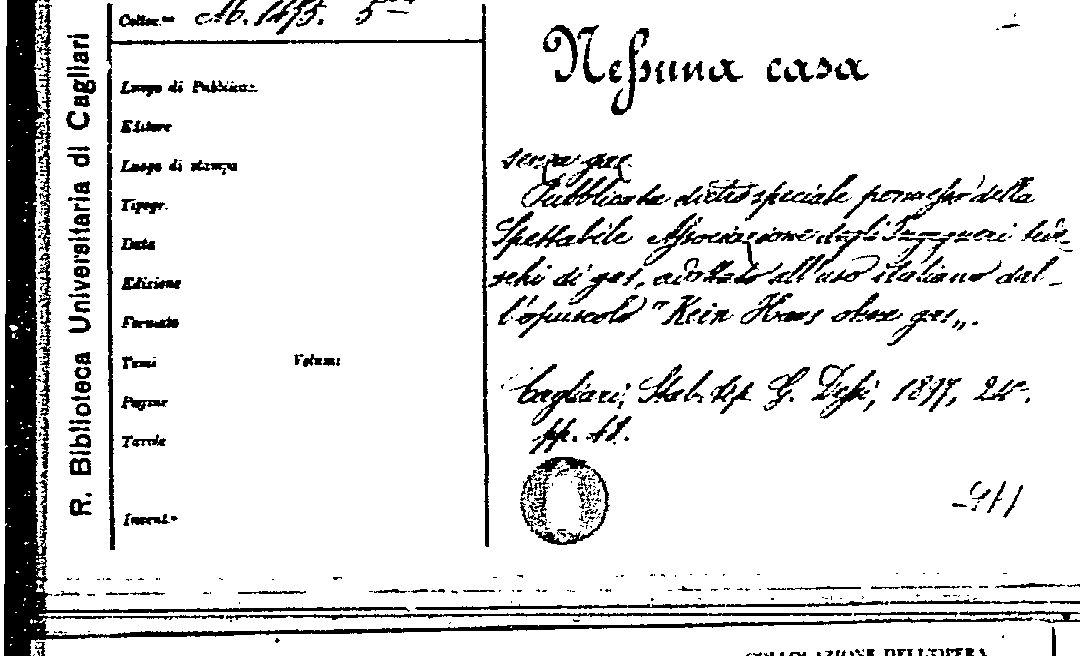 R. Biblioteca Universitaria di Cagliari
Colloc.ne M. 1473. 5
Luogo di Pubblicaz.
Editore
Luogo di stampa
Tipogr.
Data
Edizione
Formato
Tomi Volumi
Pagine
Tavole
Invent.°
Nessuna casa
senza gas.
Pubblicato dietro speciale permesso della
Spettabile Associazione degli Ingegneri tede-
schi di gas, adottato all'uso italiano dal-
l'opuscolo "Kein Haus ohne gas„.
Cagliari, Stab. tip. G. Dessì, 1897, 24°.
pp.
COLLOCAZIONE DELL'OPERA